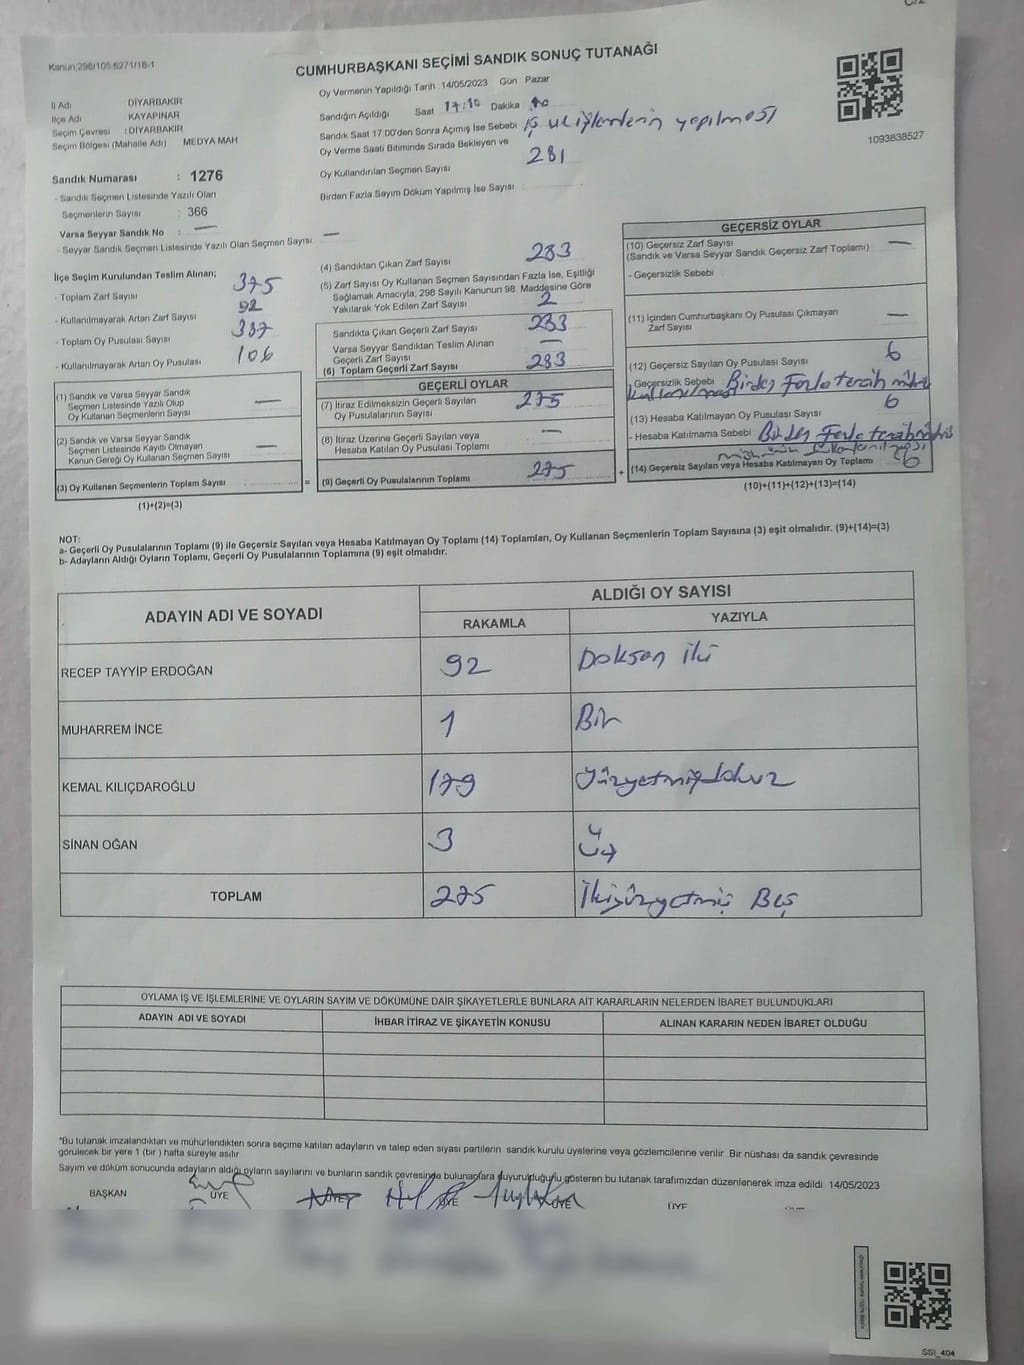 Kanun:298/105 6271/18-1
CUMHURBAŞKANI SEÇİMİ SANDIK SONUÇ TUTANAĞI
Oy Vermenin Yapıldığı Tarih :14/05/2023 Gün Pazar
İl Adı DİYARBAKIR
İlçe Adı KAYAPINAR
Seçim Çevresi : DİYARBAKIR
Seçim Bölgesi (Mahalle Adı) MEDYA MAH
Sandığın Açıldığı Saat 17:10 Dakika 10
Sandık Saat 17:00'den Sonra Açılmış İse Sebebi İş ve işlemlerin yapılması
Oy Verme Saati Bitiminde Sırada Bekleyen ve
Oy Kullandırılan Seçmen Sayısı 281
Birden Fazla Sayım Döküm Yapılmış İse Sayısı :
1093838527
Sandık Numarası : 1276
- Sandık Seçmen Listesinde Yazılı Olan
Seçmenlerin Sayısı : 366
Varsa Seyyar Sandık No : —
- Seyyar Sandık Seçmen Listesinde Yazılı Olan Seçmen Sayısı —
İlçe Seçim Kurulundan Teslim Alınan;
- Toplam Zarf Sayısı 375
- Kullanılmayarak Artan Zarf Sayısı 92
- Toplam Oy Pusulası Sayısı 387
- Kullanılmayarak Artan Oy Pusulası 106
(1) Sandık ve Varsa Seyyar Sandık
Seçmen Listesinde Yazılı Olup
Oy Kullanan Seçmenlerin Sayısı —
(2) Sandık ve Varsa Seyyar Sandık
Seçmen Listesinde Kayıtlı Olmayan
Kanun Gereği Oy Kullanan Seçmen Sayısı —
(3) Oy Kullanan Seçmenlerin Toplam Sayısı :
(1)+(2)=(3)
(4) Sandıktan Çıkan Zarf Sayısı 283
(5) Zarf Sayısı Oy Kullanan Seçmen Sayısından Fazla İse, Eşitliği
Sağlamak Amacıyla, 298 Sayılı Kanunun 98. Maddesine Göre
Yakılarak Yok Edilen Zarf Sayısı 2
Sandıkta Çıkan Geçerli Zarf Sayısı 283
Varsa Seyyar Sandıktan Teslim Alınan
Geçerli Zarf Sayısı —
(6) Toplam Geçerli Zarf Sayısı 283
GEÇERLİ OYLAR
(7) İtiraz Edilmeksizin Geçerli Sayılan
Oy Pusulalarının Sayısı 275
(8) İtiraz Üzerine Geçerli Sayılan veya
Hesaba Katılan Oy Pusulası Toplamı —
= (9) Geçerli Oy Pusulalarının Toplamı 275 +
GEÇERSİZ OYLAR
(10) Geçersiz Zarf Sayısı —
(Sandık ve Varsa Seyyar Sandık Geçersiz Zarf Toplamı)
- Geçersizlik Sebebi
(11) İçinden Cumhurbaşkanı Oy Pusulası Çıkmayan
Zarf Sayısı —
(12) Geçersiz Sayılan Oy Pusulası Sayısı 6
Geçersizlik Sebebi Birden Fazla tercih mührü
kullanılması
(13) Hesaba Katılmayan Oy Pusulası Sayısı 6
- Hesaba Katılmama Sebebi Birden Fazla tercih
(14) Geçersiz Sayılan veya Hesaba Katılmayan Oy Toplamı 6
(10)+(11)+(12)+(13)=(14)
NOT:
a- Geçerli Oy Pusulalarının Toplamı (9) ile Geçersiz Sayılan veya Hesaba Katılmayan Oy Toplamı (14) Toplamları, Oy Kullanan Seçmenlerin Toplam Sayısına (3) eşit olmalıdır. (9)+(14)=(3)
b- Adayların Aldığı Oyların Toplamı, Geçerli Oy Pusulalarının Toplamına (9) eşit olmalıdır.
ADAYIN ADI VE SOYADI ALDIĞI OY SAYISI
RAKAMLA YAZIYLA
RECEP TAYYİP ERDOĞAN 92 Doksan iki
MUHARREM İNCE 1 Bir
KEMAL KILIÇDAROĞLU 179 Yüzyetmişdokuz
SİNAN OĞAN 3 Üç
TOPLAM 275 İkiyüzyetmiş Beş
OYLAMA İŞ VE İŞLEMLERİNE VE OYLARIN SAYIM VE DÖKÜMÜNE DAİR ŞİKAYETLERLE BUNLARA AİT KARARLARIN NELERDEN İBARET BULUNDUKLARI
ADAYIN ADI VE SOYADI İHBAR İTİRAZ VE ŞİKAYETİN KONUSU ALINAN KARARIN NEDEN İBARET OLDUĞU
*Bu tutanak imzalandıktan ve mühürlendikten sonra seçime katılan adayların ve talep eden siyasi partilerin sandık kurulu üyelerine veya gözlemcilerine verilir. Bir nüshası da sandık çevresinde
görülecek bir yere 1 (bir) hafta süreyle asılır
Sayım ve döküm sonucunda adayların aldığı oyların sayılarını ve bunların sandık çevresinde bulunanlara duyurulduğunu gösteren bu tutanak tarafımızdan düzenlenerek imza edildi 14/05/2023
BAŞKAN ÜYE ÜYE ÜYE ÜYE ÜYE ÜYE
SSI_404